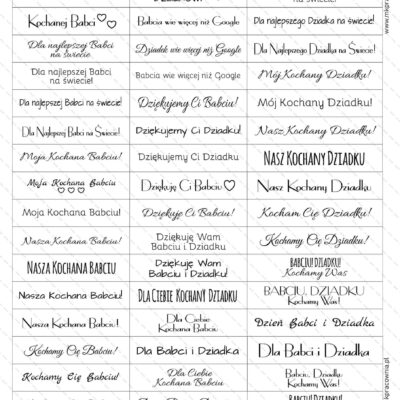 na świecie!
Kochanej Babci
Babcia wie więcej niż Google
Dla najlepszego Dziadka na świecie!
Dla najlepszej Babci
na świecie
Dziadek wie więcej niż Google
Dla Najlepszego Dziadka na Świecie!
Dla najlepszej Babci
na świecie!
Babcia wie więcej niż Google
Mój Kochany Dziadku!
Dla najlepszej Babci na świecie!
Dziękujemy Ci Babciu!
Mój Kochany Dziadku!
Dla Najlepszej Babci na Świecie!
Dziękujemy Ci Dziadku!
Nasz Kochany Dziadku!
Moja Kochana Babciu!
Dziękujemy Ci Dziadku!
Nasz Kochany Dziadku
Moja Kochana Babciu
Dziękuję Ci Babciu
Nasz Kochany Dziadku
Moja Kochana Babciu!
Dziękuję Ci Babciu!
Kocham Cię Dziadku!
Nasza Kochana Babciu!
Dziękuję Wam
Babciu i Dziadku
Kochamy Cię Dziadku!
Nasza Kochana Babciu
Dziękuję Wam
Babciu i Dziadku!
Babciu! Dziadku!
Kochamy Was
Nasza Kochana Babciu!
Dla Ciebie Kochany Dziadku
BABCIU, DZIADKU
Kochamy Was!
Nasza Kochana Babciu!
Dla Ciebie
Kochana Babciu
Dzień Babci i Dziadka
Kochamy Cię Babciu!
Dla Babci i Dziadka
Dla Babci i Dziadka
Kochamy Cię Babciu!
Dla Ciebie
Kochana Babciu
Babciu, Dziadku
Kochamy Was!
kpracownia.pl